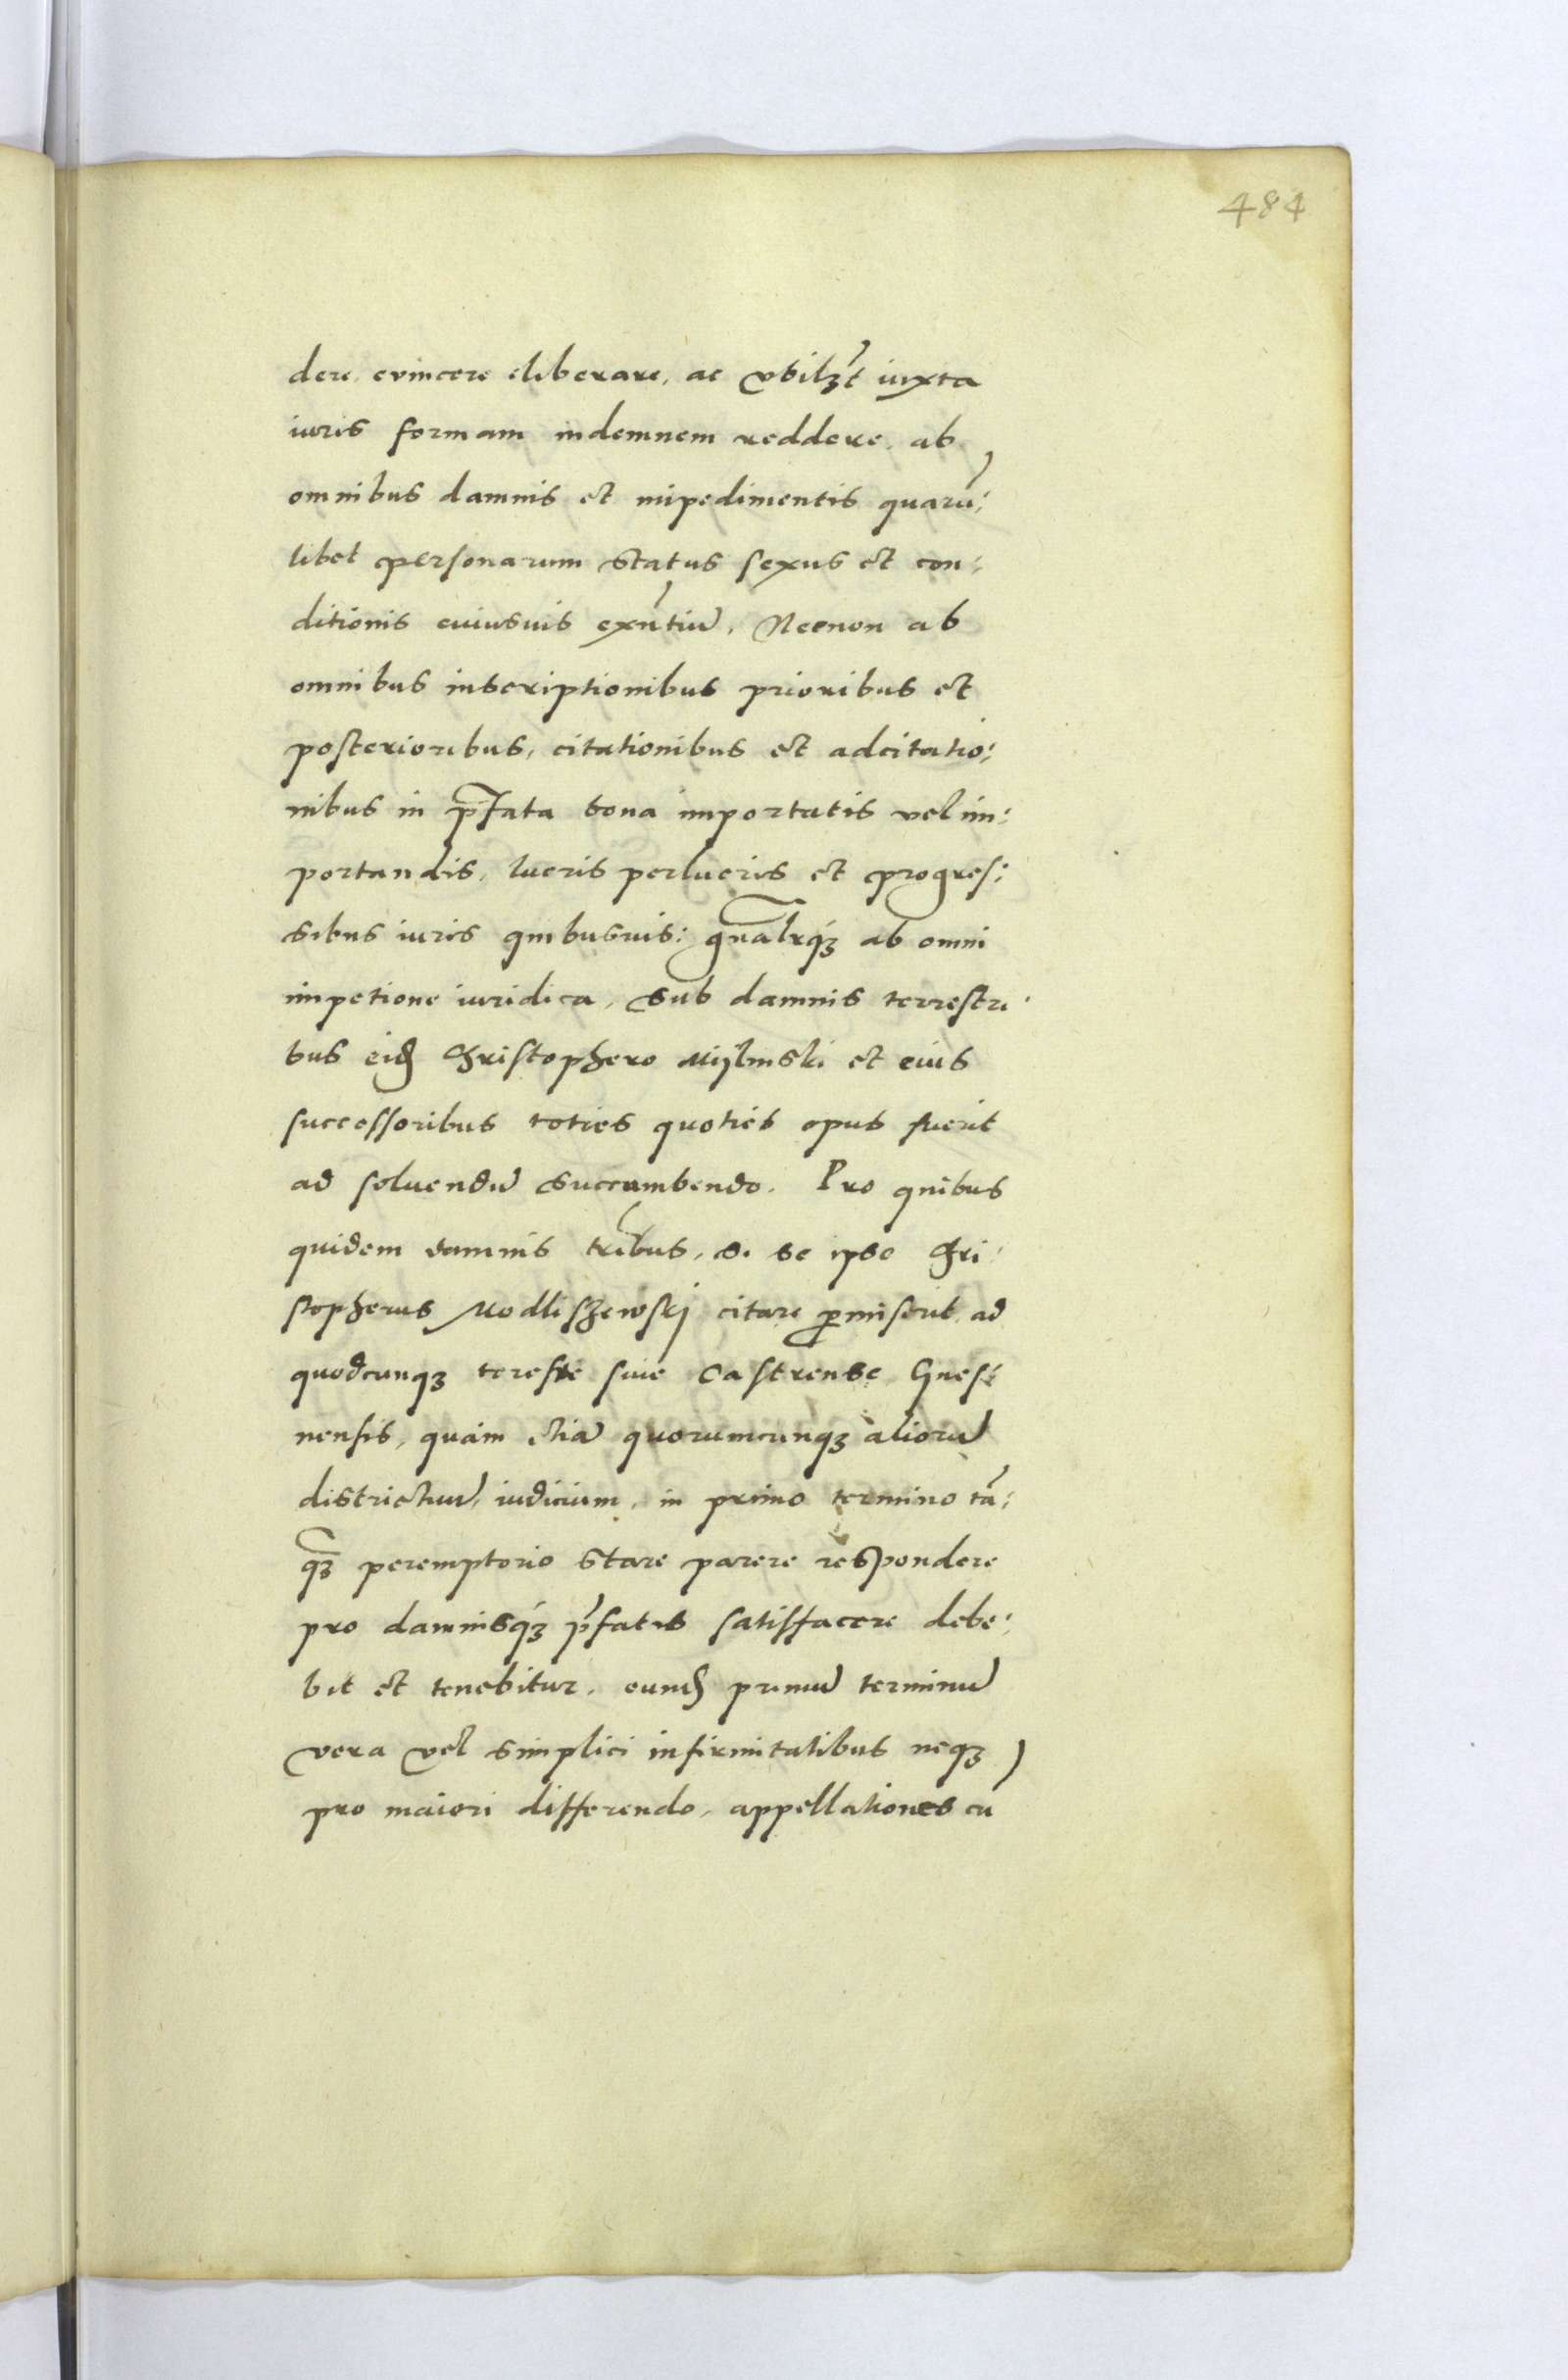 484
dere, evincere eliberare, ac vbilzt iuxta
iuris formam indemnem reddere, ab
omnibus damnis et impedimentis quarū:
libet personarum status sexus et con:
ditionis cuiusuis exn̄tiū. Necnon ab
omnibus inscriptionibus prioribus et
posterioribus, citationibus et adcitatio:
nibus in p̄fata bona importatis vel im:
portandis, lucris perlucris et progres:
sibus iuris quibusuis: gn̄alrq́ꝫ ab omni
impetione iuridica, sub damnis terrestri:
bus eid Christophero Mijlinski et eius
successoribus toties quoties opus fuerit
ad soluendū succumbendo. Pro quibus
quidem damnis tribus, s. se ipse Chri:
stopherus Modliszewskj citare ꝑmiserit, ad
quodcunqꝫ terestre siue Castrense Gnesi:
nensis, quàm etiā quorumcunqꝫ aliorū
districtuū, iudicium, in primo termino tā:
qꝫ̄ peremptorio stare parere respondere
pro damnisq́ꝫ p̄fatis satisfacere debe:
bit et tenebitur, eund primū terminū
vera vel simplici infirmitatibus neqꝫ
pro maiori differendo, appellationes cū